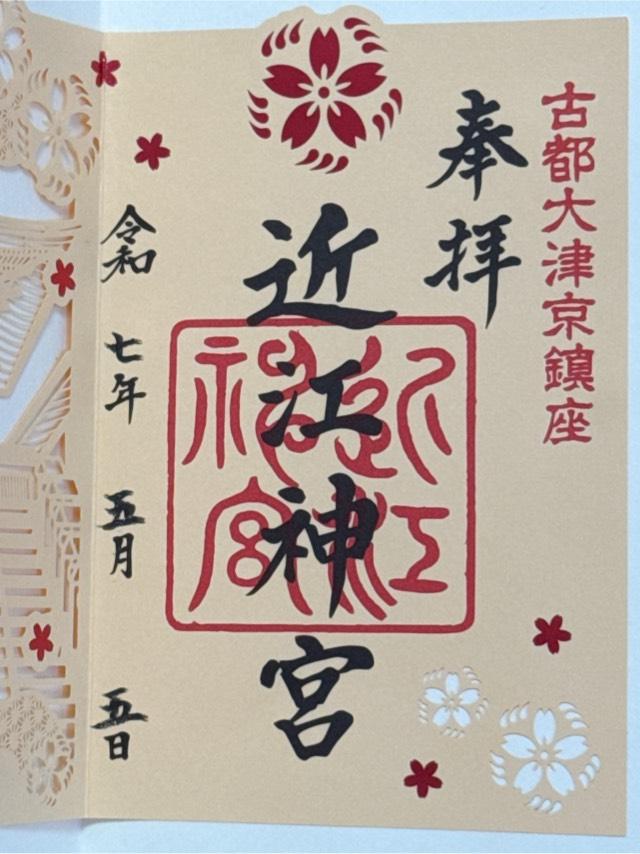 古都大津京鎮座
奉拝
近江神宮
近江神宮
令和 七年 五月 五日